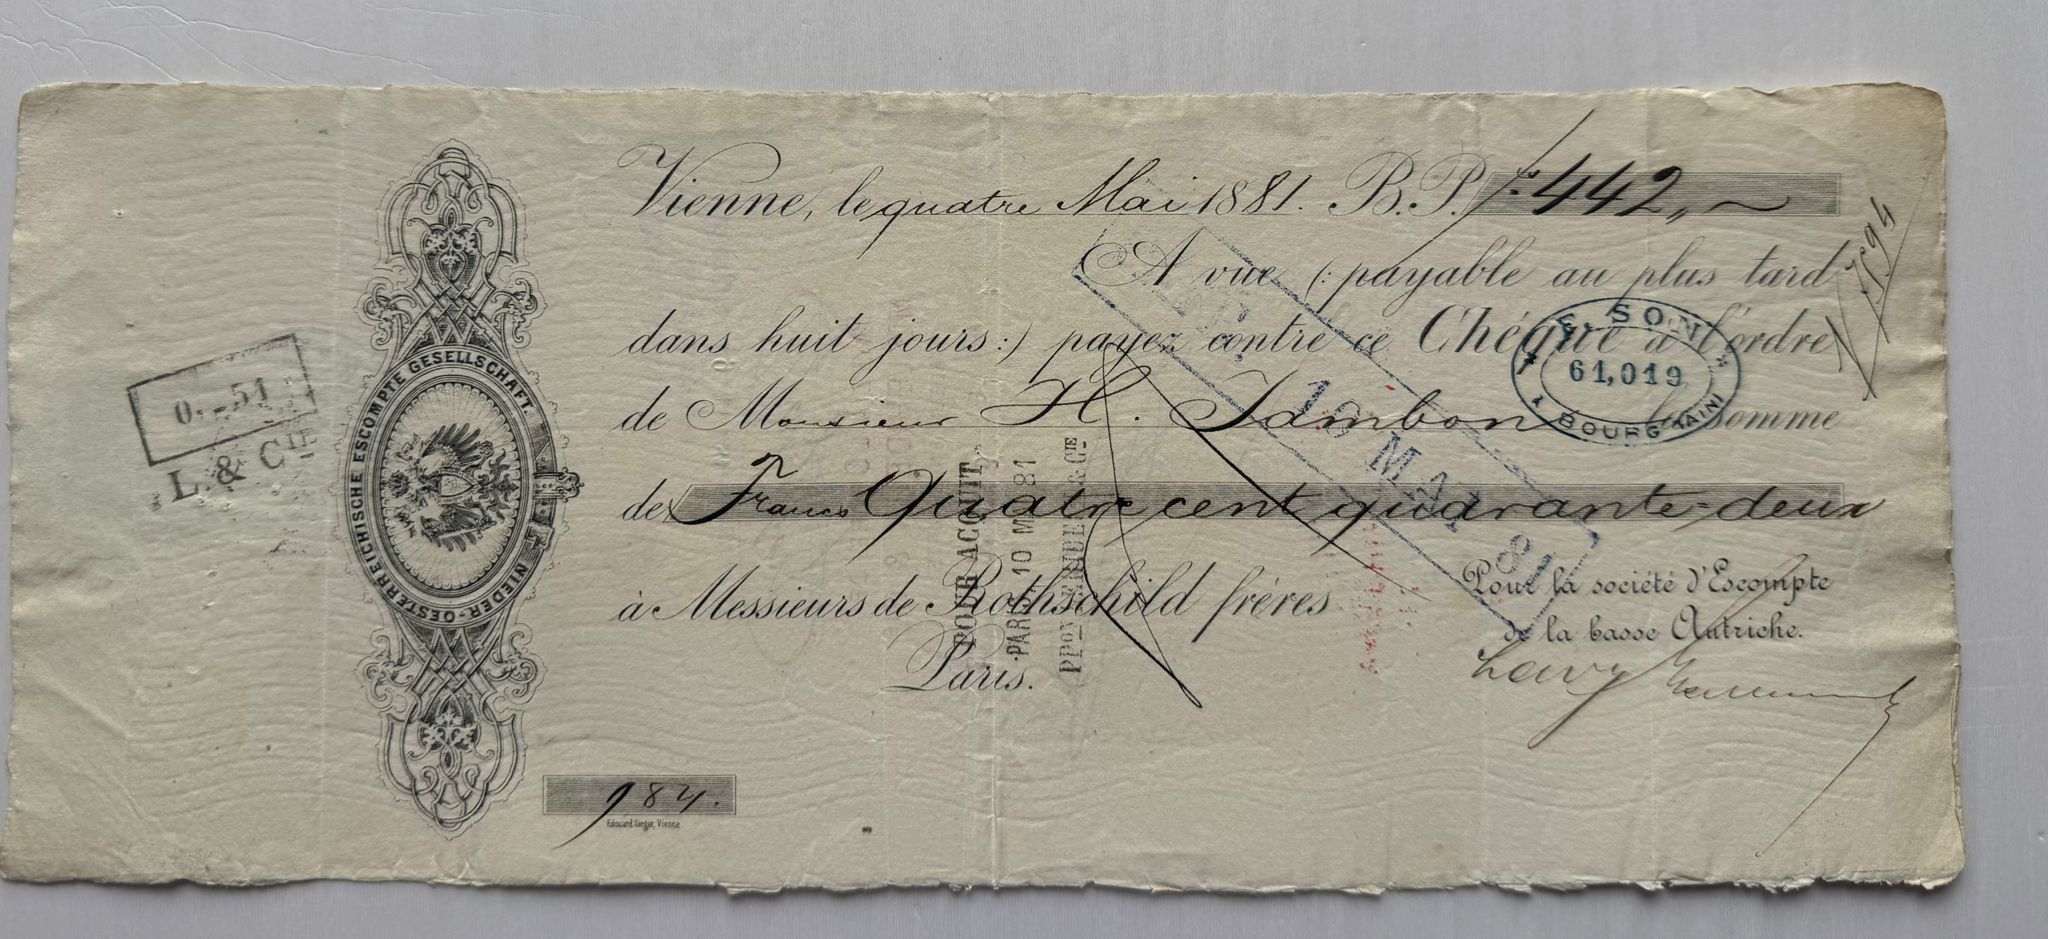 Vienne, le quatre Mai 1881. B.P. fs 442,,~
A vue (: payable au plus tard
dans huit jours:) payez contre ce Chéque à l'ordre
de Monsieur H. Jambon la somme
de Francs Quatre cent quarante-deux
à Messieurs de Rothschild frères
Paris.
Pour la société d'Escompte
de la basse Autriche.
NIEDER-OESTERREICHISCHE ESCOMPTE GESELLSCHAFT.
L. & CIE
E. SON
61,019
BOURG (AIN)
10 MAI 81
POUR ACQUIT
PARIS 10 M 81
984.
Edouard Sieger, Vienne